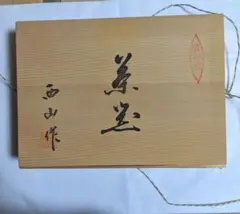 茶器
西山作